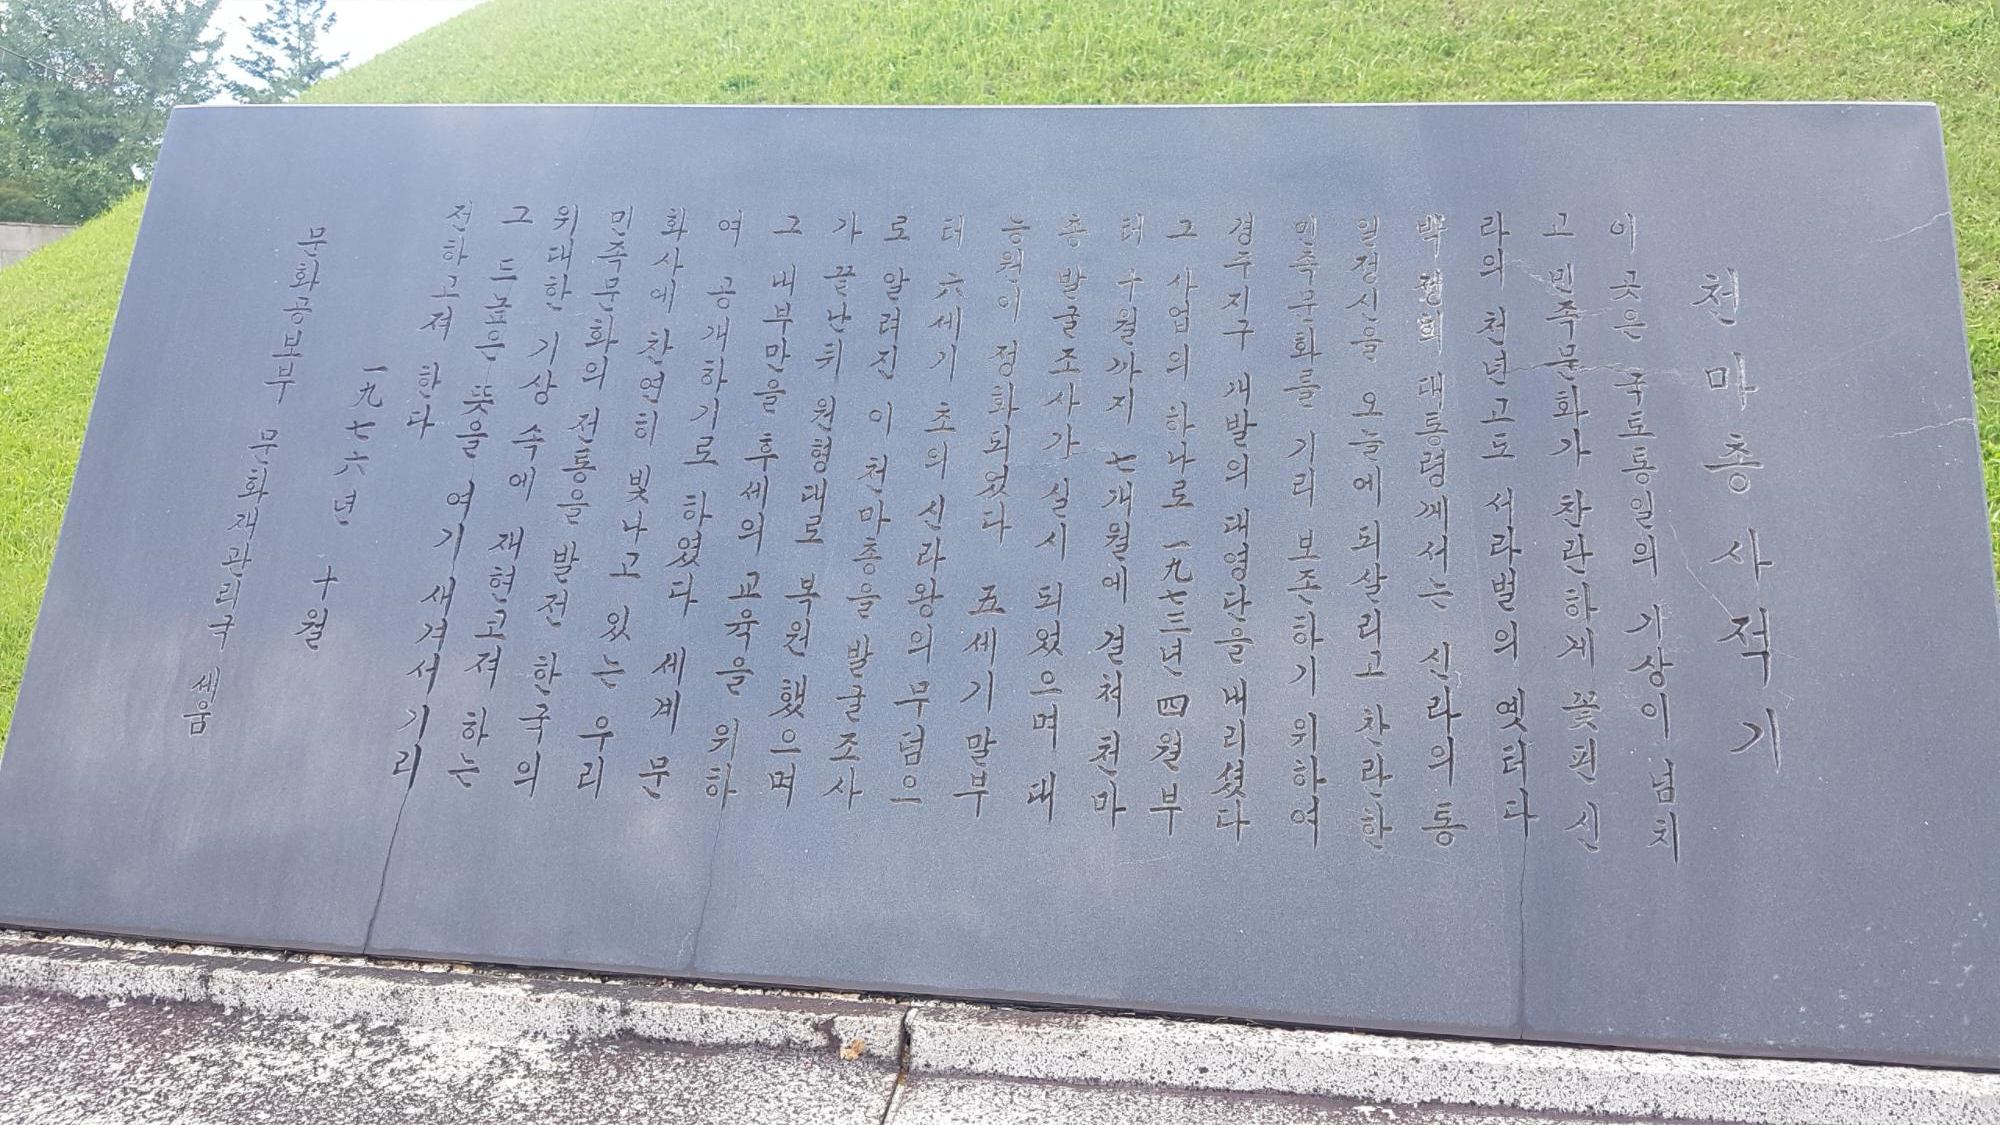 천마총사적기
이 곳은 국토통일의 기상이 넘치
고 민족문화가 찬란하게 꽃핀 신
라의 천년고도 서라벌의 옛터다
박정희 대통령께서는 신라의 통
일정신을 오늘에 되살리고 찬란한
민족문화를 기리 보존하기 위하여
경주지구 개발의 대영단을 내리셨다
그 사업의 하나로 一九七三년 四월부
터 十월까지 七개월에 걸쳐 천마
총 발굴조사가 실시 되었으며 대
능원이 정화되었다 五세기 말부
터 六세기 초의 신라왕의 무덤으
로 알려진 이 천마총을 발굴조사
가 끝난뒤 원형대로 복원 했으며
그 내부만을 후세의 교육을 위하
여 공개하기로 하였다 세계 문
화사에 찬연히 빛나고 있는 우리
민족문화의 전통을 발전 한국의
위대한 기상 속에 재현코져 하는
그 드높은 뜻을 여기 새겨서 기리
전하고져 한다
一九七六년 十월
문화공보부 문화재관리국 세움